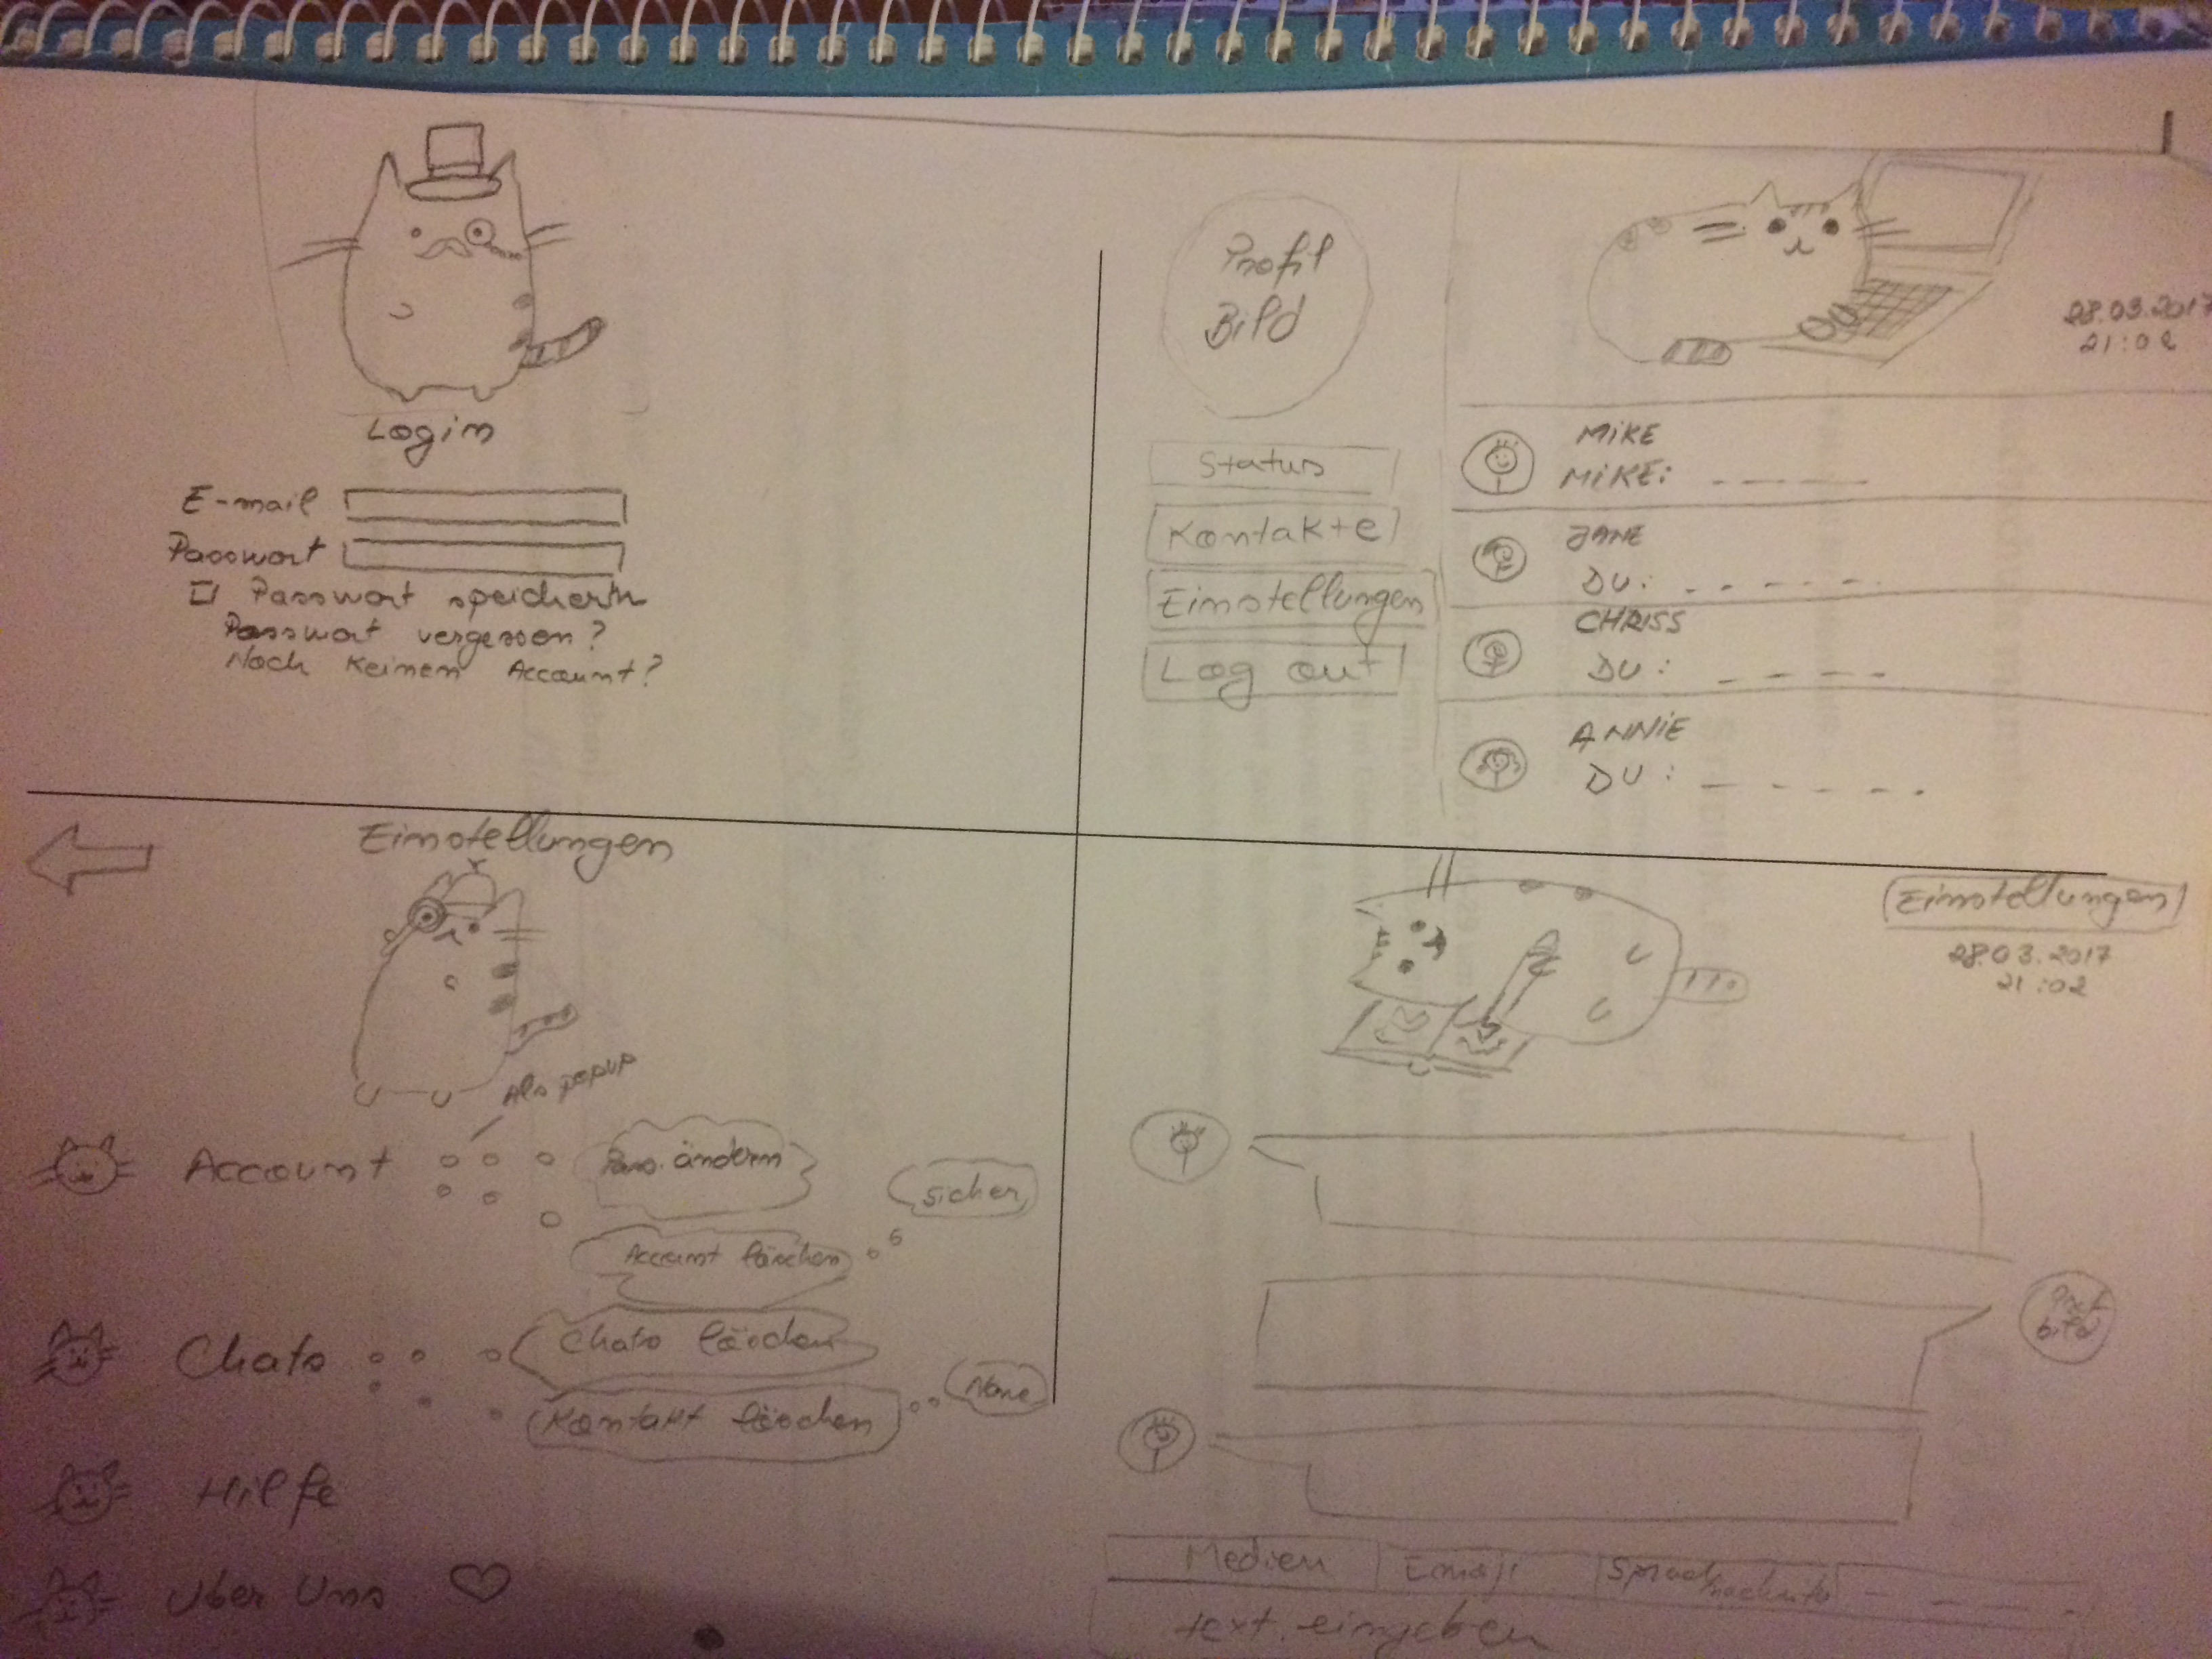 Login
E-mail
Passwort
Passwort speichern
Passwort vergessen?
Noch keinen Account?
Profil
Bild
Status
Kontakte
Einstellungen
Log out
28.03.2017
21:02
MIKE
MIKE: - - - - -
JANE
DU: - - - - -
CHRISS
DU: - - - -
ANNIE
DU: - - - - -
Einstellungen
Als popup
Account
Pass. ändern
sicher
Account löschen
Chats
Chats löschen
Kontakt löschen
Name
Hilfe
Über Uns
Einstellungen
28.03.2017
21:02
bild
Medien
Emoji
Sprach
text eingeben